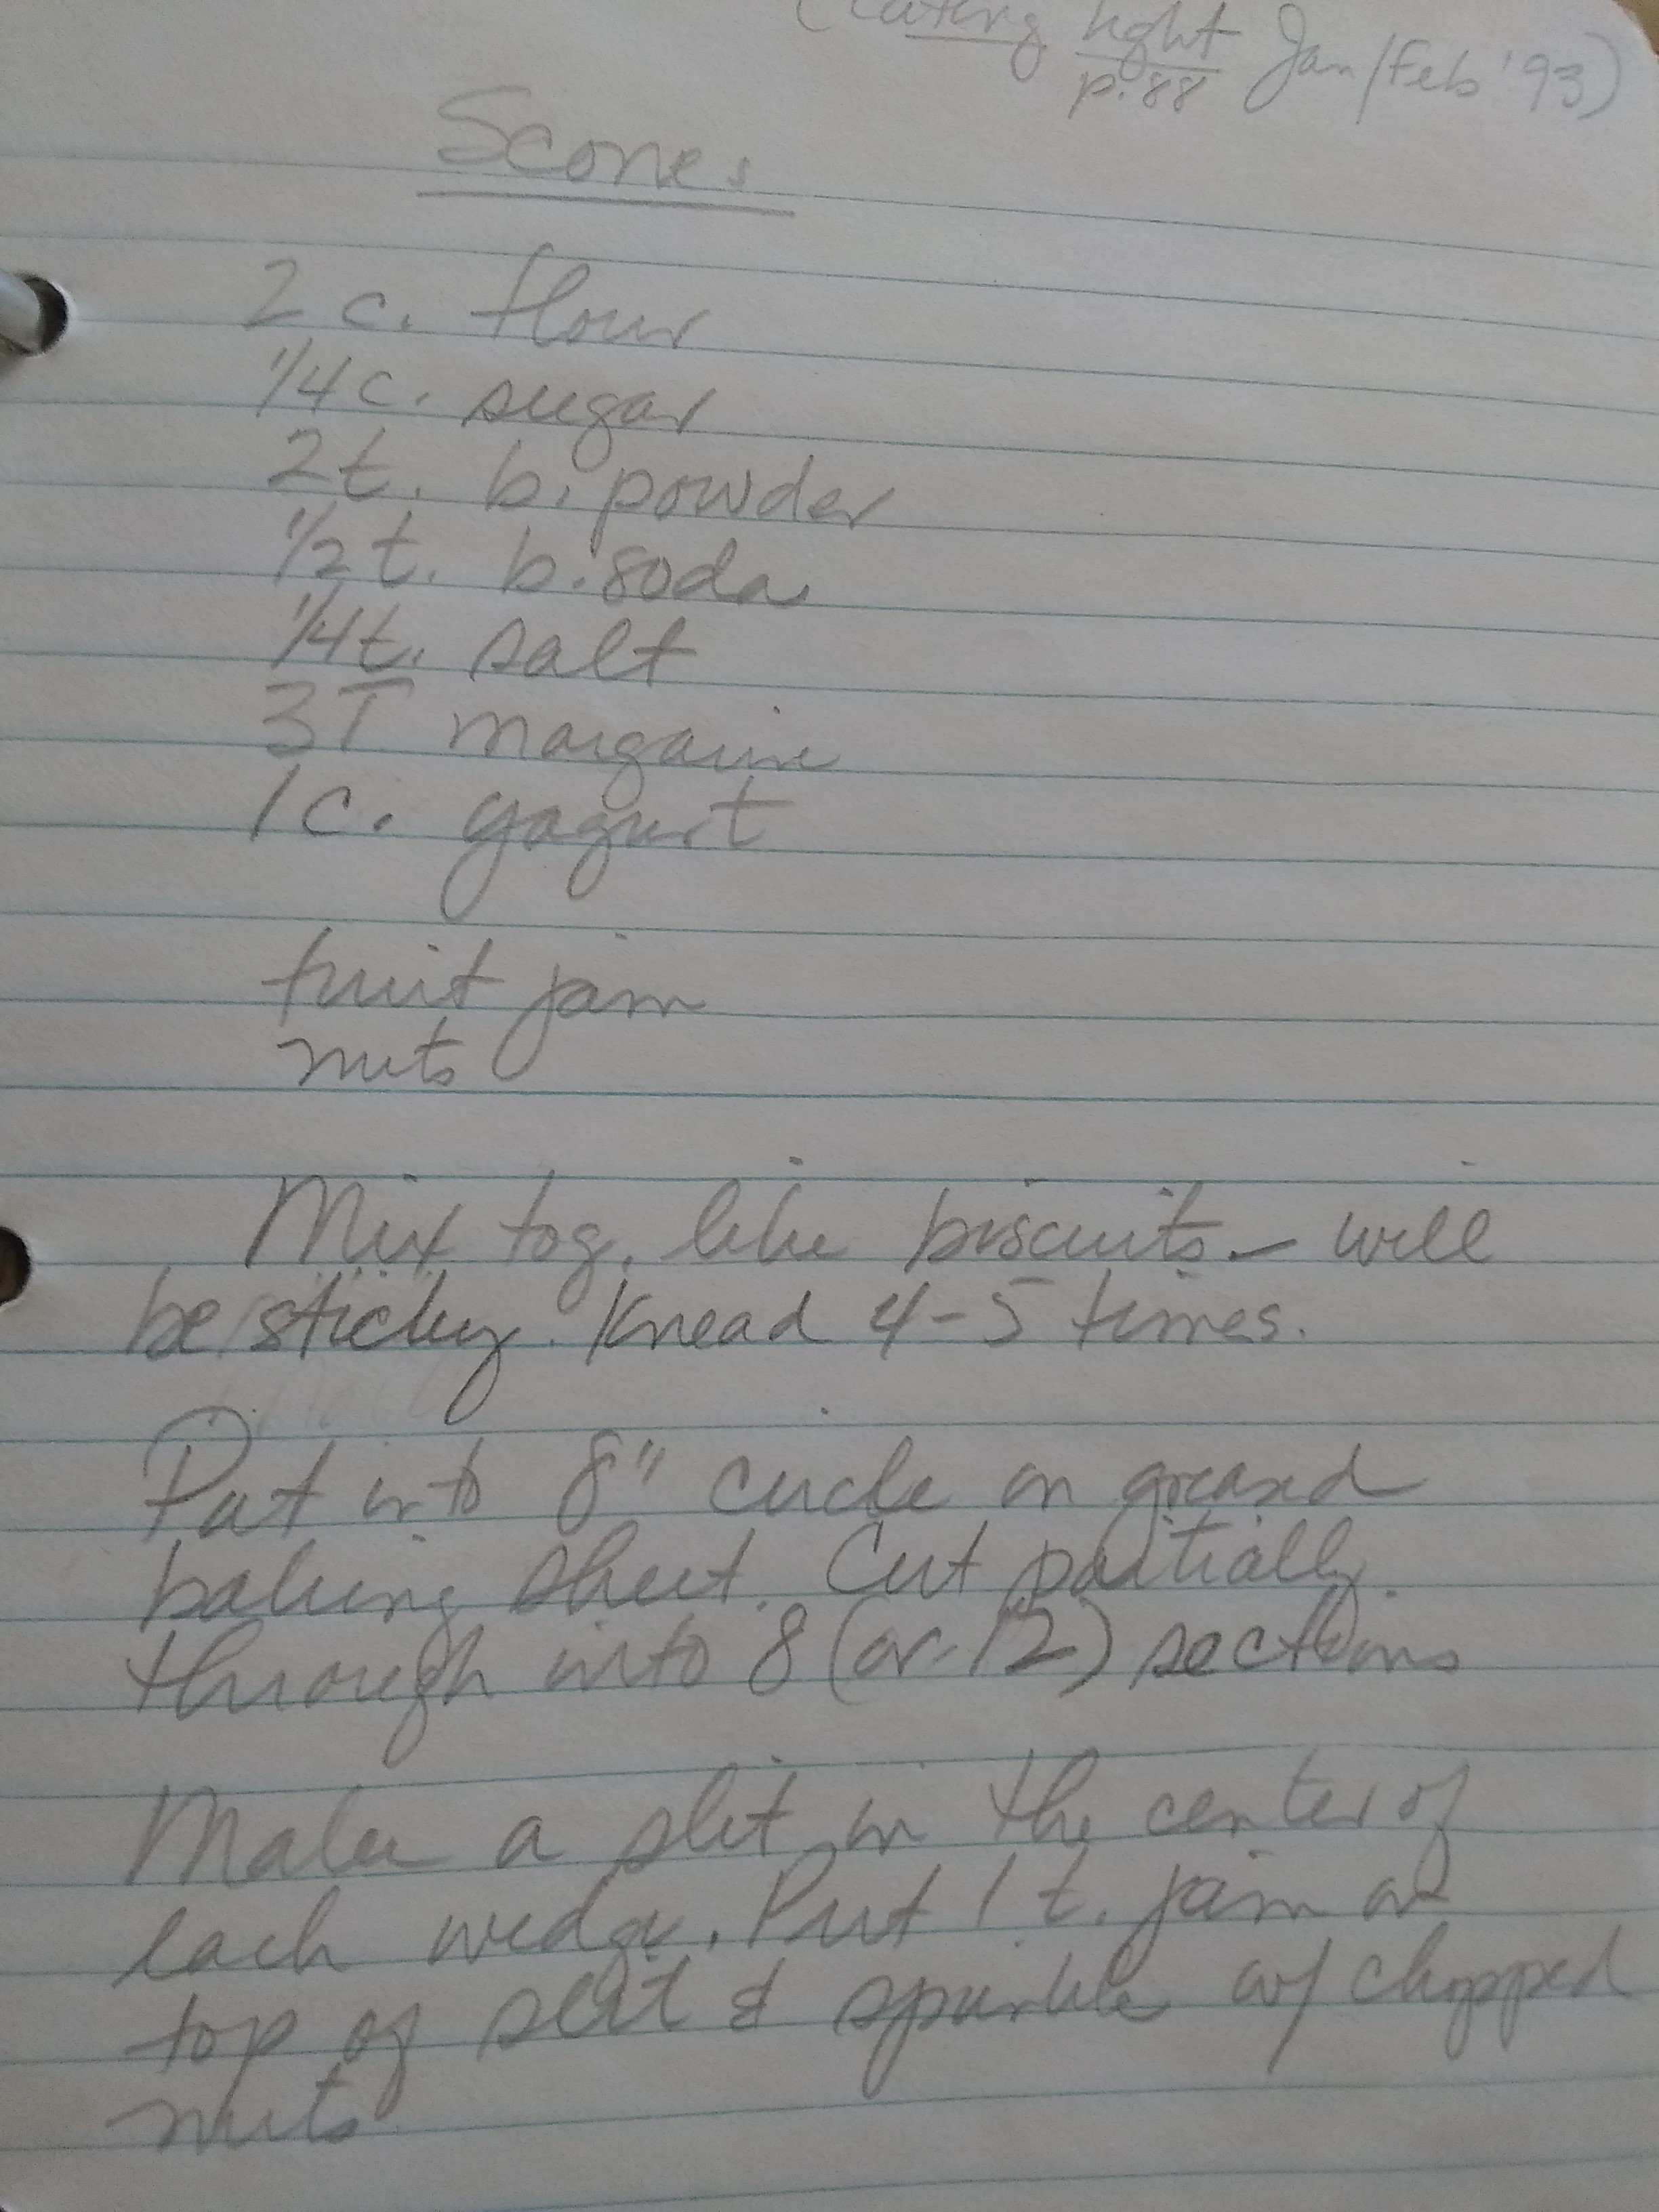 (Eating light Jan/Feb '93)
p. 88
Scones
2 c. flour
1/4 c. sugar
2 t. b. powder
1/2 t. b. soda
1/4 t. salt
3 T margarine
1 c. yogurt
fruit jam
nuts
Mix tog. like biscuits - will
be sticky. Knead 4-5 times.
Pat into 8" circle on greased
baking sheet. Cut partially
through into 8 (or 12) sections
Make a slit in the center of
each wedge. Put 1 t. jam on
top of slit & sprinkle w/ chopped
nuts